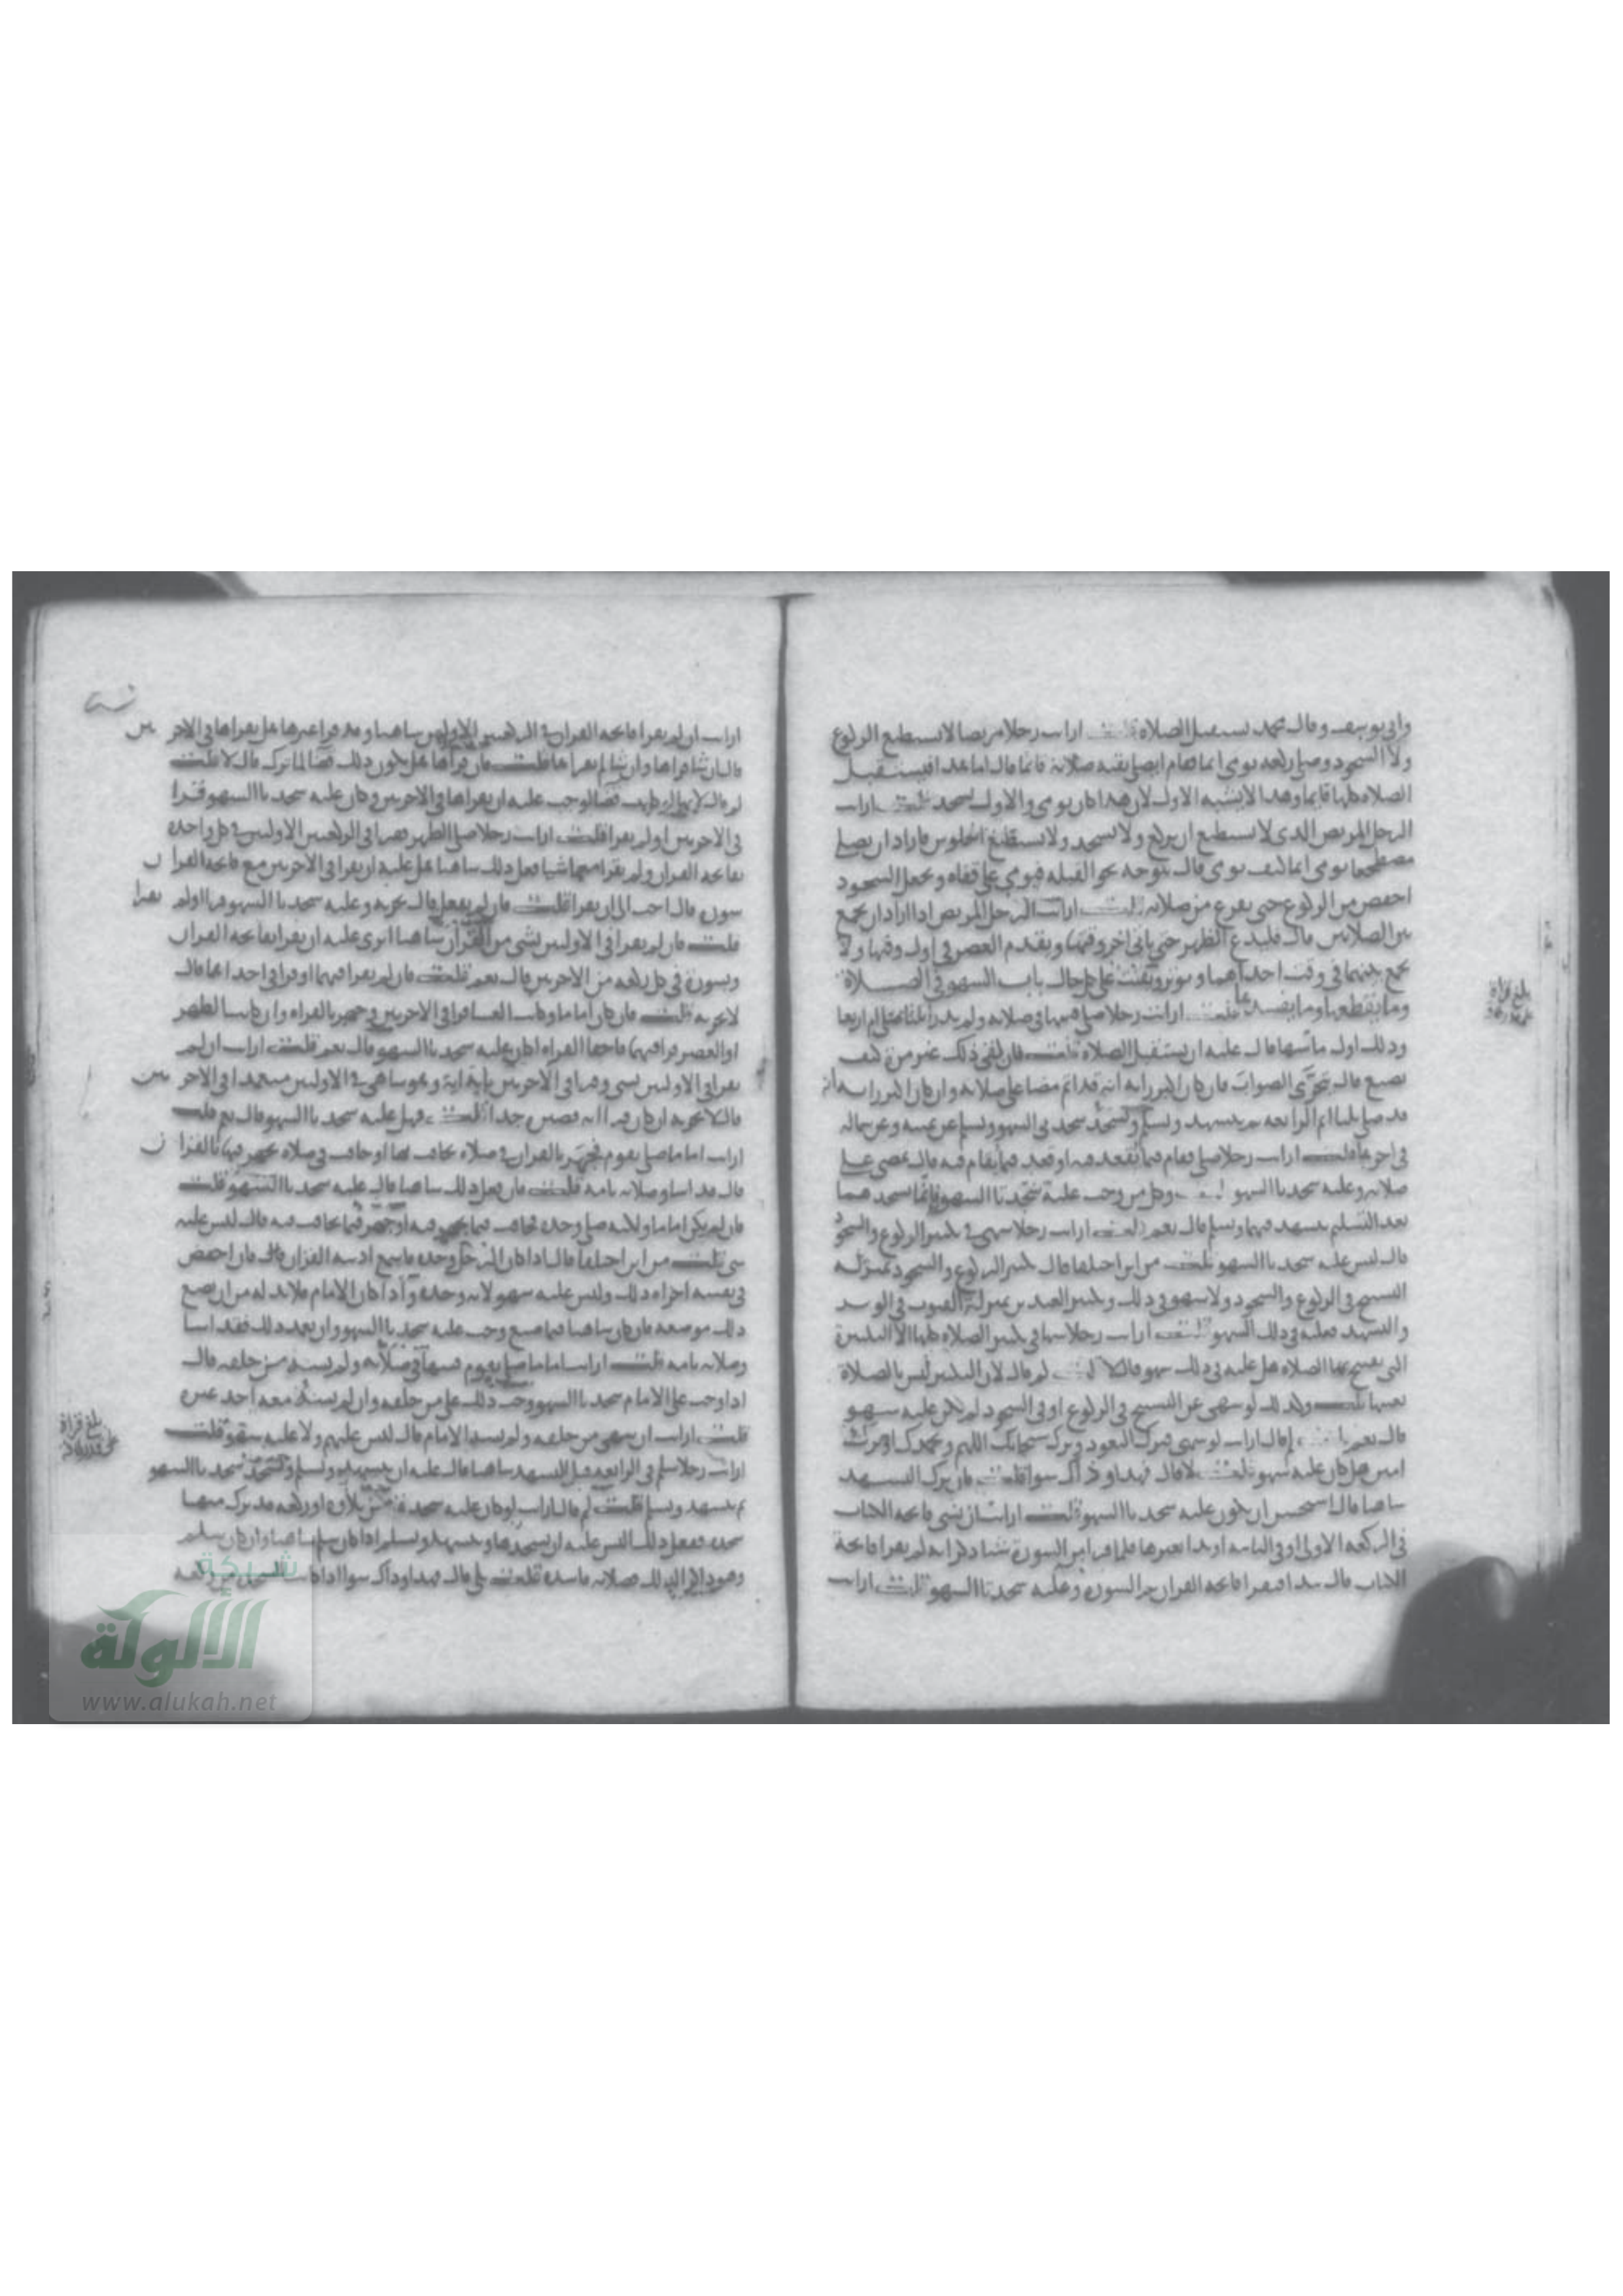 وابي يوسف وقال محمد يستقبل الصلاة قلت ارايت رجلا مريضا لا يستطيع الركوع
ولا السجود وصلى ركعه يومى ايما
الصلاه كلها قايما وهذا لا يشبه الاول لان هذا كان يومى والاول يسجد قلت ارايت
الرجل المريض الذى لا يستطيع ان يركع ولا يسجد ولا يستطيع الجلوس فاراد ان يصلى
مضطجعا يومى ايما كيف يومى قال يتوجه نحو القبله فيومي على قفاه ويجعل السجود
اخفض من الركوع حتى يفرغ من صلاته قلت ارايت الرجل المريض اذا اراد ان يجمع
بين الصلاتين قال فليدع الظهر حتى ياتى اخر وقتها ويقدم العصر فى اول وقتها ولا
يجمع بينهما فى وقت احداهما ويوتر ويقنت على كل حال باب السهو فى الصلاة
وما يقطعها وما يفسدها قلت ارايت رجلا صلى فسها فى صلاته ولم يدر اثلثا صلى ام اربعا
وذلك اول ما سها قال عليه ان يستقبل الصلاه قلت فان لقى ذلك غير مرة كيف
يصنع قال يتحرى الصواب فان كان اكبر رايه انه قد اتم مضا على صلاته وان كان اكبر رايه انه
قد صلى ثلثا اتم الرابعه ثم يتشهد ويسلم ويسجد سجدتى السهو ويسلم عن يمينه وعن شماله
فى اخرها قلت ارايت رجلا صلى فقام فيما يقعد فيه او قعد فيما يقام فيه قال يمضى على
صلاته وعليه سجدتا السهو قلت وكل من وجب عليه سجدتا السهو فانما يسجدهما
بعد التسليم يتشهد فيهما ويسلم قال نعم قلت ارايت رجلا سهى فى تكبير الركوع والسجود
قال ليس عليه سجدتا السهو قلت من اين اختلفا قال تكبير الركوع والسجود بمنزلة
التسبيح فى الركوع والسجود ولا سهو فى ذلك وتكبير العيدين بمنزلة القنوت فى الوتر
والتشهد فعليه فى ذلك السهو قلت ارايت رجلا سها فى تكبير الصلاه كلها الا التكبيرة
التى يفتتح بها الصلاه هل عليه فى ذلك سهو قال لا قلت لم قال لان التكبير ليس بالصلاة
بعينها قلت وكذلك لو سهى عن التسبيح فى الركوع او فى السجود لم يكن عليه سهو
قال نعم قلت ارايت لو سهى فترك التعوذ وترك سبحانك اللهم وبحمدك او ترك
امين هل كان عليه سهو قلت لا قال فهذا وذاك سوا قلت فان ترك التشهد
ساهيا قال استحسن ان يكون عليه سجدتا السهو قلت ارايت ان نسى فاتحه الكتاب
فى الركعه الاولى او فى الثانيه او بدا بغيرها فلما قرا من السورة شيا ذكر انه لم يقرا فاتحة
الكتاب قال يبدا فيقرا فاتحه القران ثم السوره وعليه سجدتا السهو قلت ارايت
بلغ قراة
ارايت ان لم يقرا فاتحه القران فى الركعتين الاوليين ساهيا وقد قرا غيرها هل يقراها فى الاخريين
قال ان شا قراها وان شا لم يقراها قلت فان قراها هل يكون ذلك قضا لما ترك قال لا قلت
لم قال لانه لو كانت قضا لوجب عليه ان يقراها فى الاخريين وكان عليه سجدتا السهو قرا
فى الاخريين اولم يقرا قلت ارايت رجلا صلى الظهر فقرا فى الركعتين الاوليين فى كل واحده
بفاتحه القران ولم يقرا معها شيا فعل ذلك ساهيا هل عليه ان يقرا فى الاخريين مع فاتحه القران
سوره قال احب الى ان يقرا قلت فان لم يفعل قال يجزيه وعليه سجدتا السهو قرا اولم يقرا
قلت فان لم يقرا فى الاوليين بشى من القران ساهيا اترى عليه ان يقرا بفاتحه القران
وبسورة فى كل ركعه من الاخريين قال نعم قلت فان لم يقرا فيهما او قرا فى احداهما قال
لا يجزيه قلت فان كان اماما وكانت العشا فقرا فى الاخريين وجهر بالقراه وان كانت الظهر
او العصر قرا فيهما فاخفا القراه اكان عليه سجدتا السهو قال نعم قلت ارايت ان لم
يقرا فى الاوليين بشى وقرا فى الاخريين باية اية وهو ساهى فى الاوليين متعمدا فى الاخريين
قال لا يجزيه ان كان قرا اية قصيره جدا قلت فهل عليه سجدتا السهو قال نعم قلت
ارايت اماما صلى بقوم فجهر بالقران فى صلاه يخافت بها او خافت فى صلاه يجهر فيها بالقران
قال قد اسا وصلاته تامه قلت فان فعل ذلك ساهيا قال عليه سجدتا السهو قلت
فان لم يكن اماما ولكنه صلى وحده فخافت فيما يجهر فيه او جهر فيما يخافت فيه قال ليس عليه
شى قلت من اين اختلفا قال اذا كان الرجل وحده فاسمع اذنيه القران قال فان اخفض
فى نفسه اجزاه ذلك وليس عليه سهو لانه وحده واذا كان الامام فلا بد له من ان يضع
ذلك موضعه فان كان ساهيا فيما صنع وجب عليه سجدتا السهو وان تعمد ذلك فقد اسا
وصلاته تامه قلت ارايت اماما صلى بقوم فسها فى صلاته ولم يسه من خلفه قال
اذا وجب على الامام سجدتا السهو وجب ذلك على من خلفه وان لم يسه معه احد غيره
قلت ارايت ان سهى من خلفه ولم يسه الامام قال ليس عليهم ولا عليه سهو قلت
ارايت رجلا سلم فى الرابعه قبل التشهد ساهيا قال عليه ان يتشهد ويسلم ويسجد سجدتا السهو
ثم يتشهد ويسلم قلت لم قال ارايت لو كان عليه سجدة من تلاوه او ركعه قد ترك منها
سجده ففعل ذلك اليس عليه ان يسجدها ويتشهد ويسلم اذا كان سلم ساهيا وان كان سلم
وهو ذاكر لذلك فصلاته فاسده قلت بلى قال فهذا وذاك سوا اذا كانت السجده من ركعه
بلغ قراة
شبكة
الألوكة
www.alukah.net